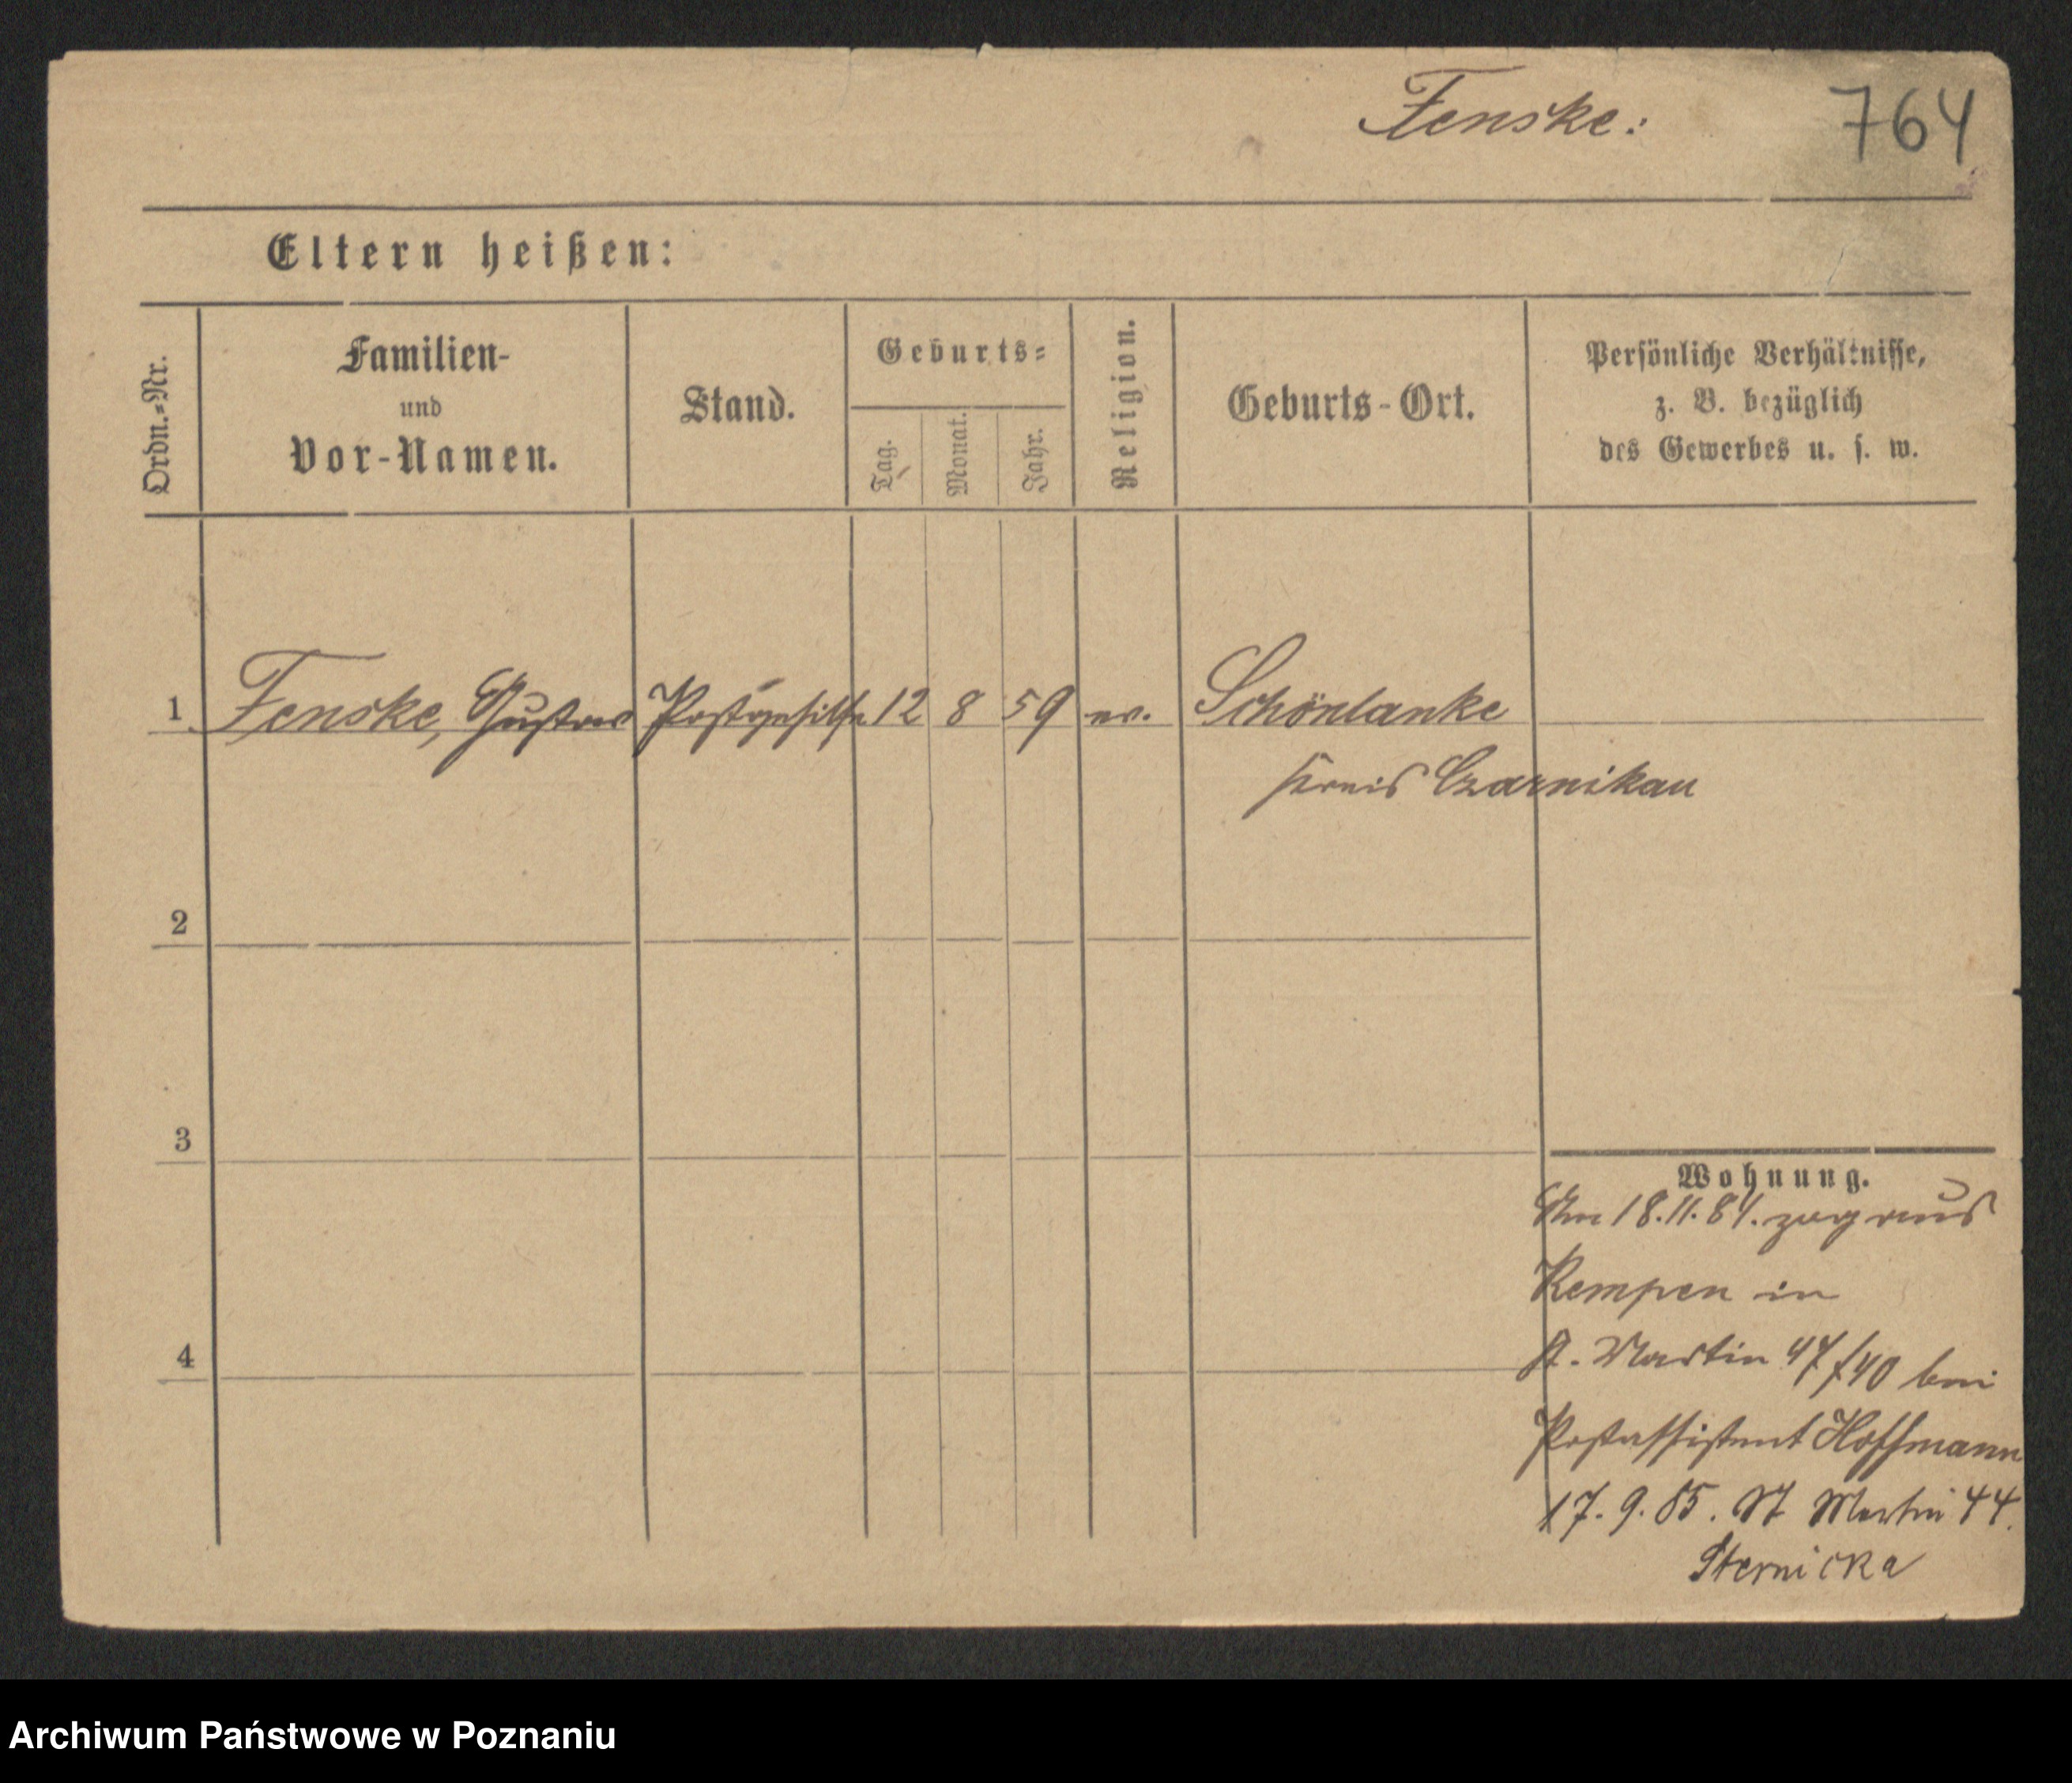 Fenske:
764
Eltern heißen:
Ordn.=Nr.
Familien-
und
Vor-Namen.
Stand.
Geburts=
Tag.
Monat.
Jahr.
Religion.
Geburts-Ort.
Persönliche Verhältnisse,
z. B. bezüglich
des Gewerbes u. s. w.
1 Fenske, Gustav Postgehilfe 12 8 59 ev. Schönlanke
Kreis Czarnikau
2
3
4
Wohnung.
Am 18.11.84. zog aus
Kempen in
St. Martin 47/40 bei
Postassistent Hoffmann
17. 9. 85. St Martin 44.
Sternicka
Archiwum Państwowe w Poznaniu